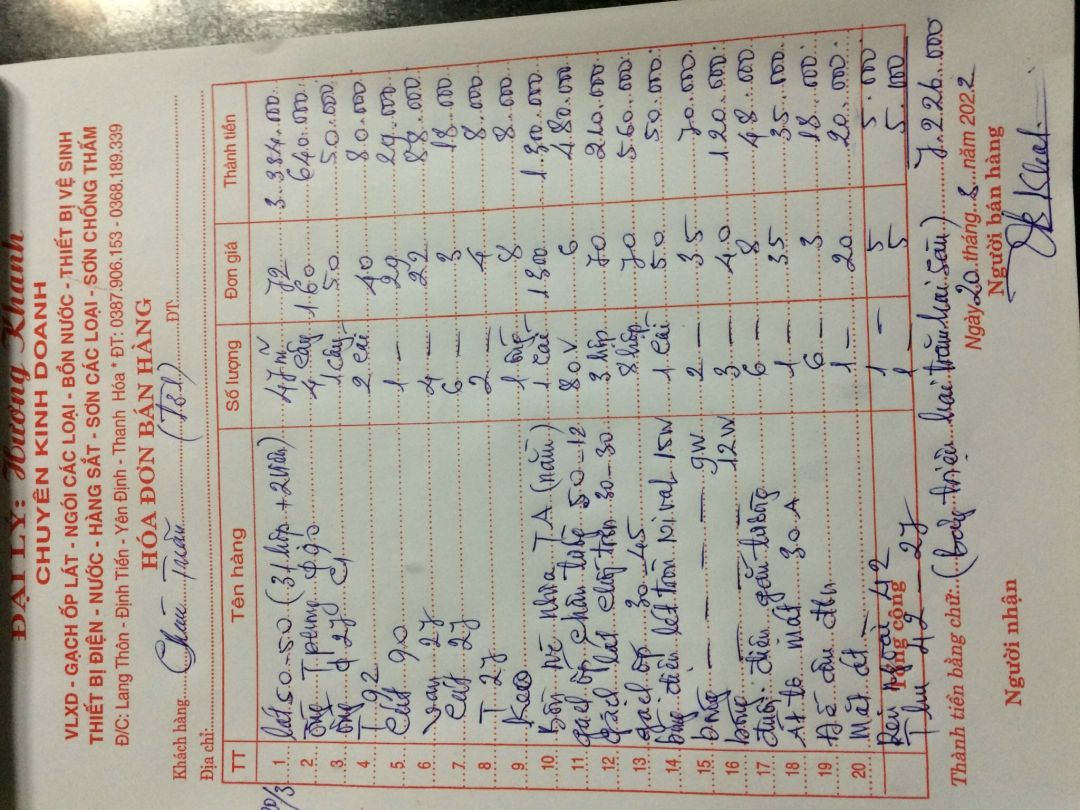 ĐẠI LÝ: Hương Khanh
CHUYÊN KINH DOANH
VLXD - GẠCH ỐP LÁT - NGÓI CÁC LOẠI - BỒN NƯỚC - THIẾT BỊ VỆ SINH
THIẾT BỊ ĐIỆN - NƯỚC - HÀNG SẮT - SƠN CÁC LOẠI - SƠN CHỐNG THẤM
Đ/C: Lang Thôn - Định Tiến - Yên Định - Thanh Hóa * ĐT: 0387.906.153 - 0368.189.339
HÓA ĐƠN BÁN HÀNG
20/3
Khách hàng Tuấn ĐT:
Địa chỉ:
TT Tên hàng Số lượng Đơn giá Thành tiền
1 lát 50-50 (31 hộp + 2 viên) 47 72 3.384.000
2 ống T phong φ90 4 cây 160 640.000
3 ống φ 27 C1 1 cây 50 50.000
4 T 92 2 cái 40 80.000
5 Cút 90 1 — 29 29.000
6 van 27 4 — 22 88.000
7 Cút 27 6 — 3 18.000
8 T 27 2 — 4 8.000
9 Keo 1 8 8.000
10 Bồn nhựa TA (nằm) 1 cái 1300 1.300.000
11 gạch ốp chân tường 50-12 80 V 6 480.000
12 gạch lát chống trơn 30-30 3 hộp 70 210.000
13 gạch ốp 30-45 8 hộp 70 560.000
14 bóng điện lét tròn 15W 1 cái 50 50.000
15 bóng — — — — 9W 2 — 35 70.000
16 bóng — — — — 12W 3 — 40 120.000
17 đuôi điện gắn tường 6 — 8 48.000
18 At tô mát 30A 1 — 35 35.000
19 Đế âm đơn 6 — 3 18.000
20 Mặt át 1 — 20 20.000
Ren ngoài 42 1 — 5 5.000
Tổng cộng
Thu 42 - 27 1 5 5.000
Thành tiền bằng chữ: (bảy triệu hai trăm hai sáu) 7.226.000
Ngày 20 tháng 8 năm 2022
Người nhận Người bán hàng